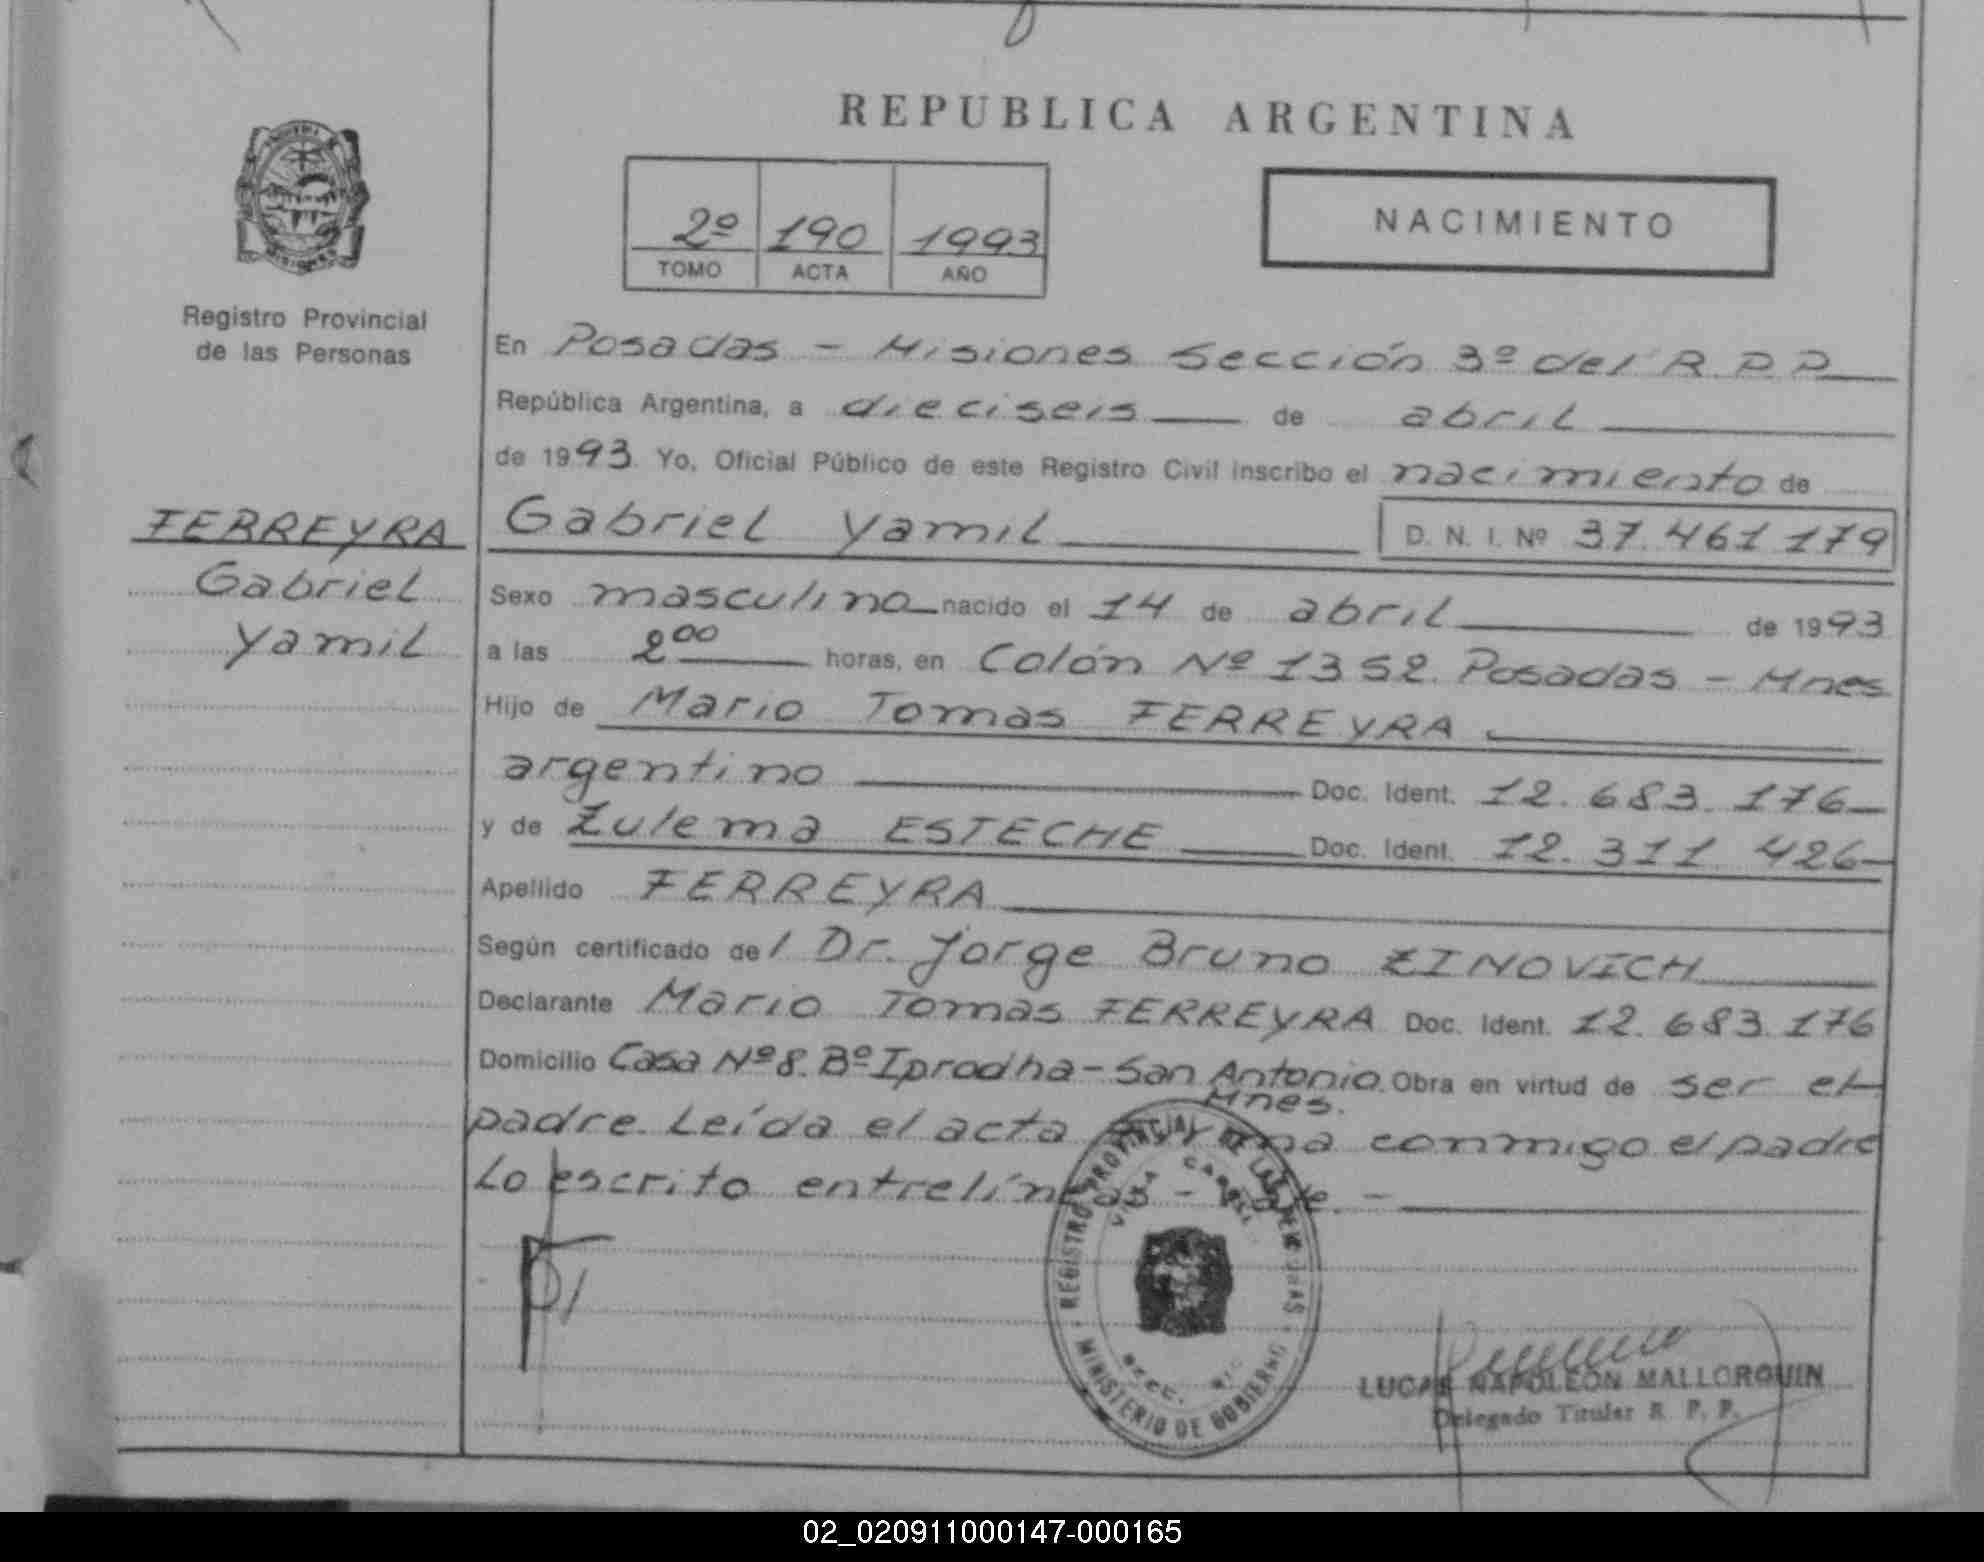 REPUBLICA ARGENTINA
2º 190 1993
TOMO ACTA AÑO
NACIMIENTO
MISIONES
Registro Provincial
de las Personas
FERREYRA
Gabriel
Yamil
En Posadas - Misiones Sección 3º del R.P.P.
República Argentina, a dieciseis de abril
de 1993. Yo, Oficial Público de este Registro Civil inscribo el nacimiento de
Gabriel Yamil D. N. I. Nº 37.461.179
Sexo masculino nacido el 14 de abril de 1993
a las 2 00 horas, en Colón Nº 1352. Posadas - Mnes
Hijo de Mario Tomas FERREYRA
argentino Doc. Ident. 12.683.176
y de Zulema ESTECHE Doc. Ident. 12.311.426
Apellido FERREYRA
Según certificado del Dr. Jorge Bruno ZINOVICH
Declarante Mario Tomas FERREYRA Doc. Ident. 12.683.176
Domicilio Casa Nº 8. Bº Iprodha - San Antonio. Obra en virtud de ser el
Mnes.
padre. Leída el acta conmigo el padre
Lo escrito entrelíneas -
REGISTRO PROVINCIAL DE LAS PERSONAS
MINISTERIO DE GOBIERNO
LUCAS NAPOLEON MALLORQUIN
Delegado Titular R. P. P.
02_020911000147-000165